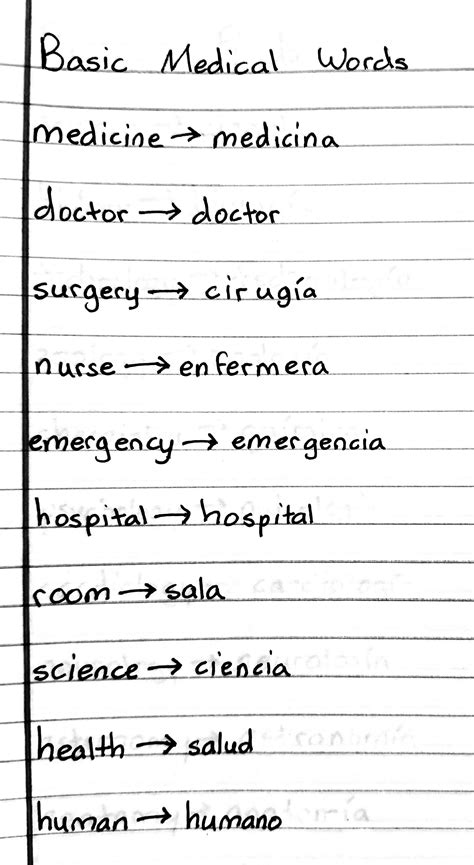 Basic Medical Words
medicine → medicina
doctor → doctor
surgery → cirugía
nurse → enfermera
emergency → emergencia
hospital → hospital
room → sala
science → ciencia
health → salud
human → humano